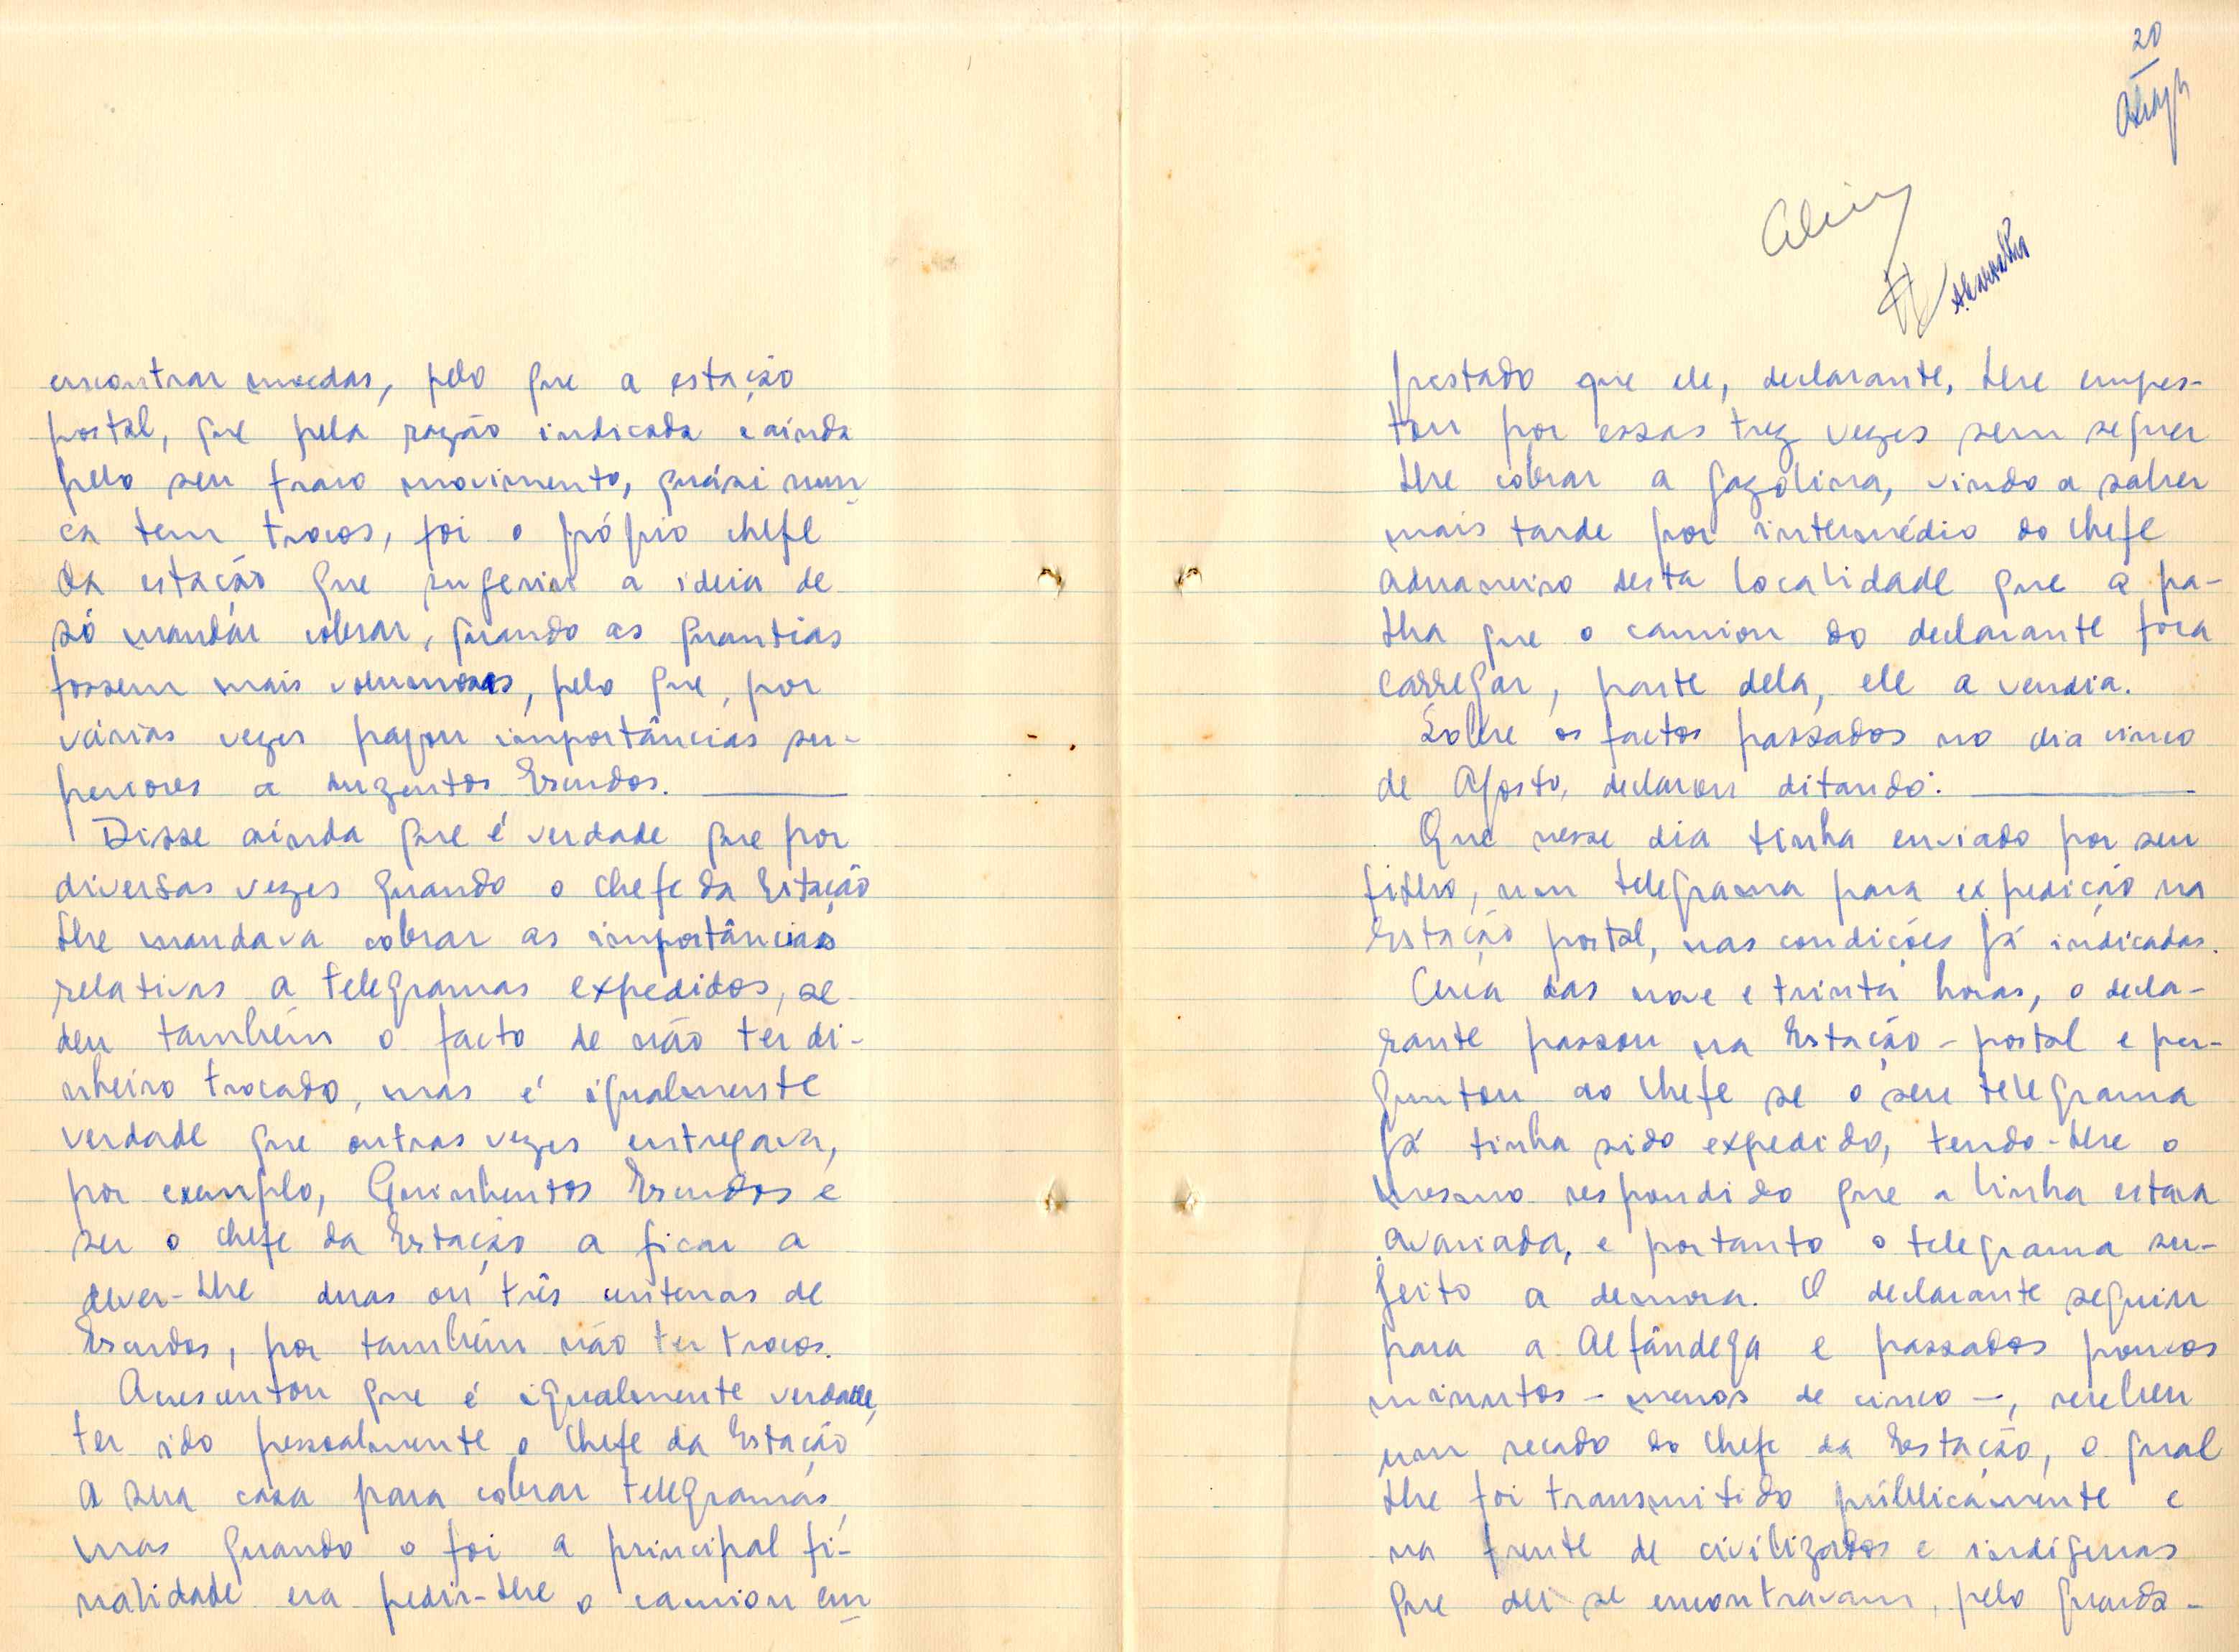 encontrar moedas, pelo que a estação
postal, que pela razão indicada e ainda
pelo seu fraco movimento, quási nun
ca tem trocos, foi o próprio chefe
da estação que sugeriu a ideia de
só mandar cobrar, quando as quantias
fossem mais volumosas, pelo que, por
várias vezes pagou importâncias su-
periores a duzentos Escudos.
Disse ainda que é verdade que por
diversas vezes quando o chefe da Estação
lhe mandava cobrar as importâncias
relativas a telegramas expedidos, se
deu também o facto de não ter di-
nheiro trocado, mas é igualmente
verdade que outras vezes entregava,
por exemplo, Quinhentos Escudos e
ser o chefe da Estação a ficar a
dever-lhe duas ou três centenas de
Escudos, por também não ter trocos.
Acrescentou que é igualmente verdade,
ter ido pessoalmente o Chefe da Estação
a sua casa para cobrar telegramas,
mas quando o foi a principal fi-
nalidade era pedir-lhe o camion em
20
A. Carvalho
prestado que ele, declarante, lhe empres-
tou por essas trez vezes sem sequer
lhe cobrar a gazolina, vindo a saber
mais tarde por intermédio do Chefe
aduaneiro desta localidade que a pa-
lha que o camion do declarante fora
carregar, parte dela, ele a vendia.
Sobre os factos passados no dia cinco
de Agosto, declarou ditando:
Que nesse dia tinha enviado por seu
filho, um telegrama para expedição na
Estação postal, nas condições já indicadas.
Cerca das nove e trinta horas, o decla-
rante passou na Estação-postal e per-
guntou ao Chefe se o seu telegrama
já tinha sido expedido, tendo-lhe o
mesmo respondido que a linha estava
avariada, e portanto o telegrama su-
jeito a demora. O declarante seguiu
para a Alfândega e passados poucos
minutos - menos de cinco -, recebeu
um recado do Chefe da Estação, o qual
lhe foi transmitido públicamente e
na frente de civilizados e indígenas
que ali se encontravam, pelo guarda-